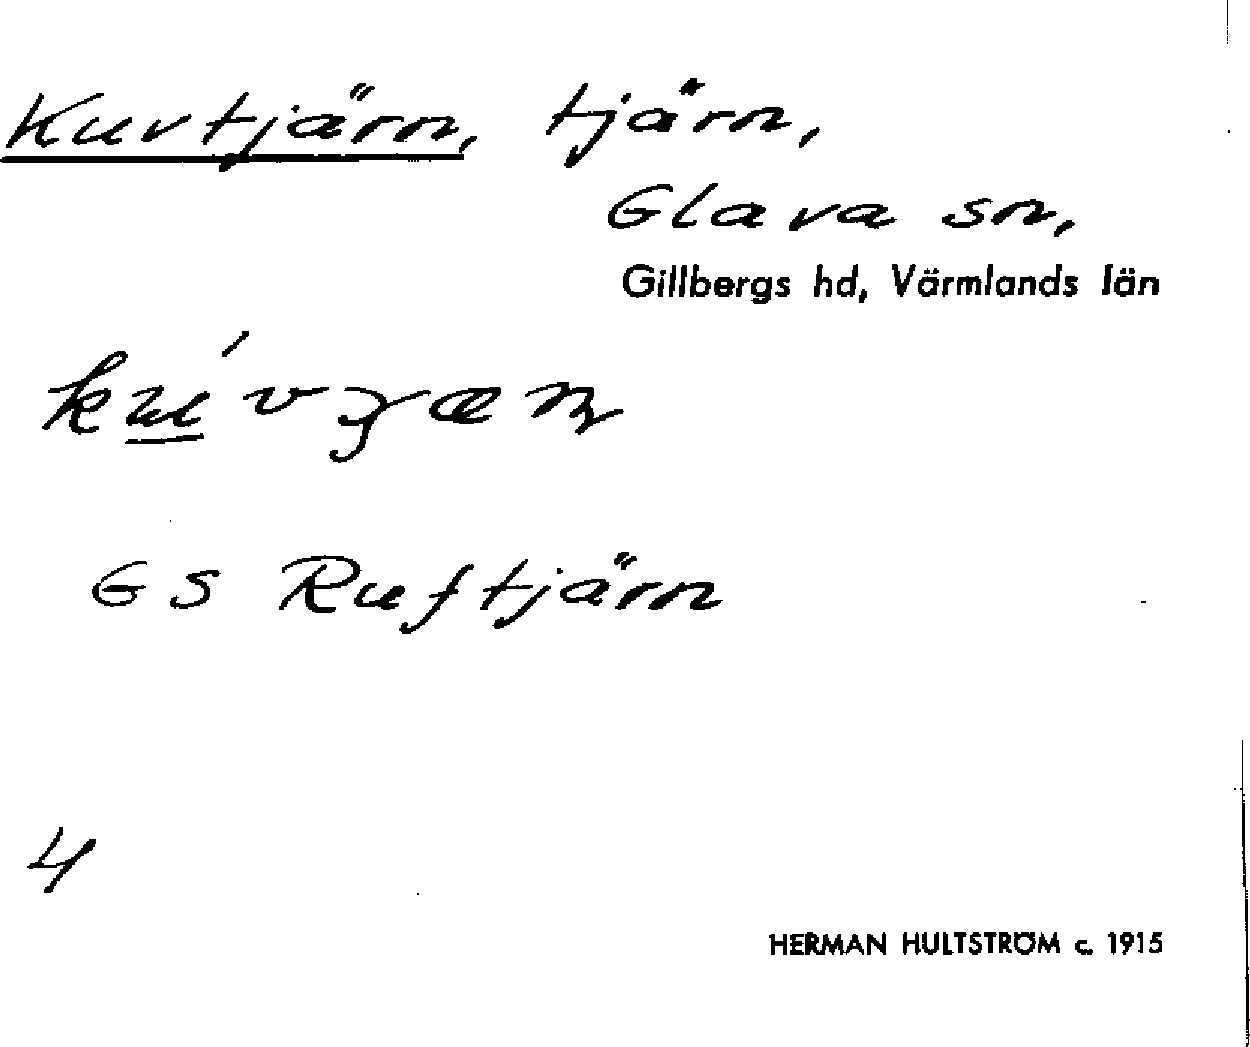 Kuvtjärn, tjärn,
Glava sn,
Gillbergs hd, Värmlands län
GS Ruftjärn
4
HERMAN HULTSTRÖM c. 1915